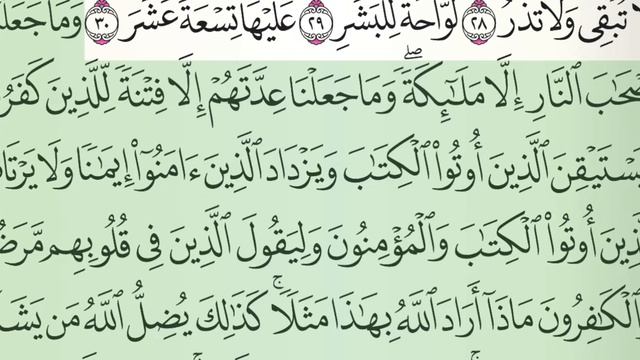 تُبْقِى وَلَا تَذَرُ ٢٨ لَوَّاحَةٌ لِّلْبَشَرِ ٢٩ عَلَيْهَا تِسْعَةَ عَشَرَ ٣٠ وَمَا جَعَلْنَا
أَصْحَٰبَ ٱلنَّارِ إِلَّا مَلَٰٓئِكَةً ۖ وَمَا جَعَلْنَا عِدَّتَهُمْ إِلَّا فِتْنَةً لِّلَّذِينَ كَفَرُ
يَسْتَيْقِنَ ٱلَّذِينَ أُوتُوا۟ ٱلْكِتَٰبَ وَيَزْدَادَ ٱلَّذِينَ ءَامَنُوٓا۟ إِيمَٰنًا وَلَا يَرْتَا
ٱلَّذِينَ أُوتُوا۟ ٱلْكِتَٰبَ وَٱلْمُؤْمِنُونَ وَلِيَقُولَ ٱلَّذِينَ فِى قُلُوبِهِم مَّرَضٌ
ٱلْكَٰفِرُونَ مَاذَآ أَرَادَ ٱللَّهُ بِهَٰذَا مَثَلًا ۚ كَذَٰلِكَ يُضِلُّ ٱللَّهُ مَن يَشَا